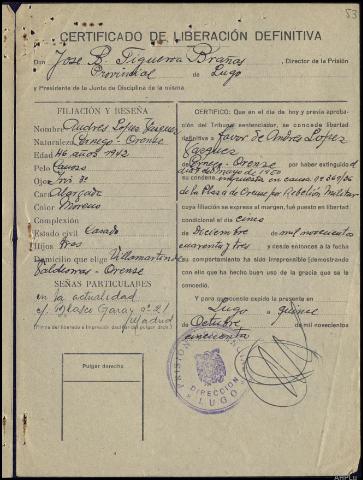 53
CERTIFICADO DE LIBERACIÓN DEFINITIVA
Don Jose B. Figueroa Brañas, Director de la Prisión
Provincial de Lugo
y Presidente de la Junta de Disciplina de la misma
FILIACIÓN Y RESEÑA
Nombre Andres Lopez Vasquez
Naturaleza Orense
Edad 46 años 1942
Pelo Canoso
Ojos
Cara Alargada
Color Moreno
Complexión
Estado civil Casado
Hijos tres
Domicilio que elige Villamartin de
Valdeorras - Orense
SEÑAS PARTICULARES
en la actualidad
c/. Blasco Garay nº 21
Madrid
(Firma del liberado e impresión dactilar del pulgar dcho.)
Pulgar derecho
CERTIFICO: Que en el día de hoy y previa aproba-
ción del Tribunal sentenciador, se concede libertad
definitiva a favor de Andrés Lopez
Vasquez
de Orense por haber extinguido el
día de mayo de 1950
la condena impuesta en causa nº
de la Plaza de Orense por Rebelión Militar
cuya filiación se expresa al margen, fué puesto en libertad
condicional el día cinco
de Diciembre de mil novecientos
cuarenta y tres y desde entonces a la fecha
su comportamiento ha sido irreprensible demostrando
con ello que ha hecho buen uso de la gracia que se la
concedió.
Y para que conste expido la presente en
Lugo a quince
de Octubre de mil novecientos
cincuenta
DIRECCION
LUGO
AHPLU